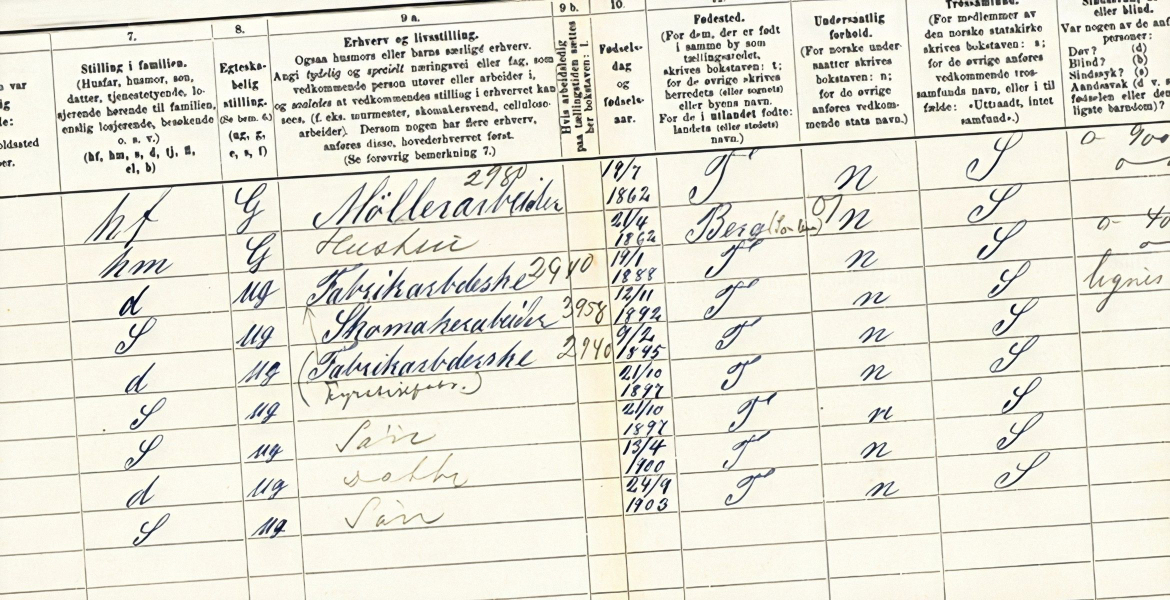 7.
8.
9 a.
9 b.
10.
Stilling i familien.
(Husfar, husmor, søn,
datter, tjenestetyende, lo-
sjerende hørende til familien,
enslig losjerende, besøkende
o. s. v.)
(hf, hm, s, d, tj, fl,
el, b)
Egteska-
belig
stilling.
(Se bem. 6.)
(ug, g,
e, s, f)
Erhverv og livsstilling.
Ogsaa husmors eller barns særlige erhverv.
Angi tydelig og specielt næringsvei eller fag, som
vedkommende person utøver eller arbeider i,
og saaledes at vedkommendes stilling i erhvervet kan
sees, (f. eks. murmester, skomakersvend, cellulose-
arbeider). Dersom nogen har flere erhverv,
anføres disse, hovederhvervet først.
(Se forøvrig bemerkning 7.)
Hvis arbeidsledig
paa tællingstiden sættes
her bokstaven: l.
Fødsels-
dag
og
fødsels-
aar.
Fødested.
(For dem, der er født
i samme by som
tællingsstedet,
skrives bokstaven: t;
for de øvrige skrives
herredets (eller sognets)
eller byens navn.
For de i utlandet fødte:
landets (eller stedets)
navn.)
Undersaatlig
forhold.
(For norske under-
saatter skrives
bokstaven: n;
for de øvrige
anføres vedkom-
mende stats navn.)
Trossamfund.
(For medlemmer av
den norske statskirke
skrives bokstaven: s;
for de øvrige anføres
vedkommende tros-
samfunds navn, eller i til
fælde: «Uttraadt, intet
samfund».)
eller blind.
Var nogen av de anf
personer:
Døv? (d)
Blind? (b)
Sindssyk? (s)
Aandssvak (d v. s
fødselen eller den
ligste barndom)?
2980
hf G Møllerarbeider 19/7 1862 T n S
hm G Hustru 21/4 1862 Berg n S
d ug Fabrikarbderske 2940 19/1 1888 T n S
S ug Skomakerarbeider 3958 12/11 1892 T n S
d ug (Fabrikarbderske 2940 9/2 1895 T n S
S ug 21/10 1897 T n S
S ug Søn 21/10 1897 T n S
d ug datter 13/4 1900 T n S
S ug Søn 24/9 1903 T n S